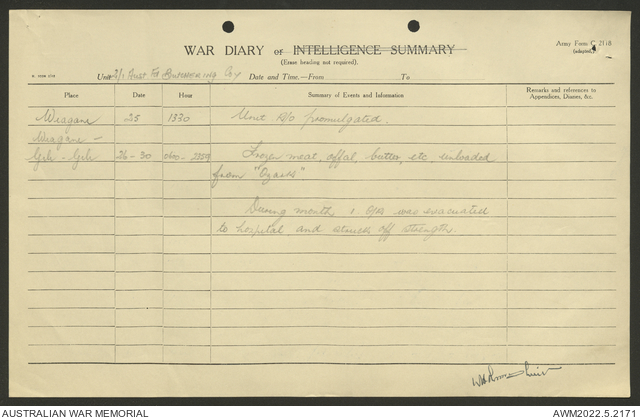 WAR DIARY of INTELLIGENCE SUMMARY
(Erase heading not required).
Army Form C 2118
(adapted)
Unit 2/1 Aust Fd Butchering Coy Date and Time.—From To
Place Date Hour Summary of Events and Information Remarks and references to Appendices, Diaries, &c.
Waagani 25 1330 Unit R/O promulgated.
Waagani -
Gili - Gili 26 - 30 0600 - 2359 Frozen meat, offal, butter, etc unloaded
from "Ozarks"
During month 1 O/R was evacuated
to hospital and struck off strength.
AUSTRALIAN WAR MEMORIAL AWM2022.5.2171